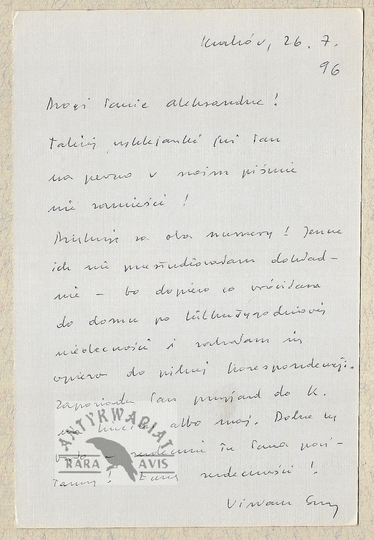 Kraków, 26. 7.
96
Drogi Panie Aleksandrze!
Takiej wyklejanki już Pan
na pewno w swoim piśmie
nie zamieści!
Dziękuję za oba numery! Jeszcze
ich nie przestudiowałam dokład-
nie – bo dopiero co wróciłam
do domu po kilkutygodniowej
nieobecności i zabrałam się
do pilnej korespondencji.
Zapowiada Pan przyjazd do K.
albo maj. Dobrze
serdecznie tu Pana
serdeczności!
ANTYKWARIAT
RARA AVIS